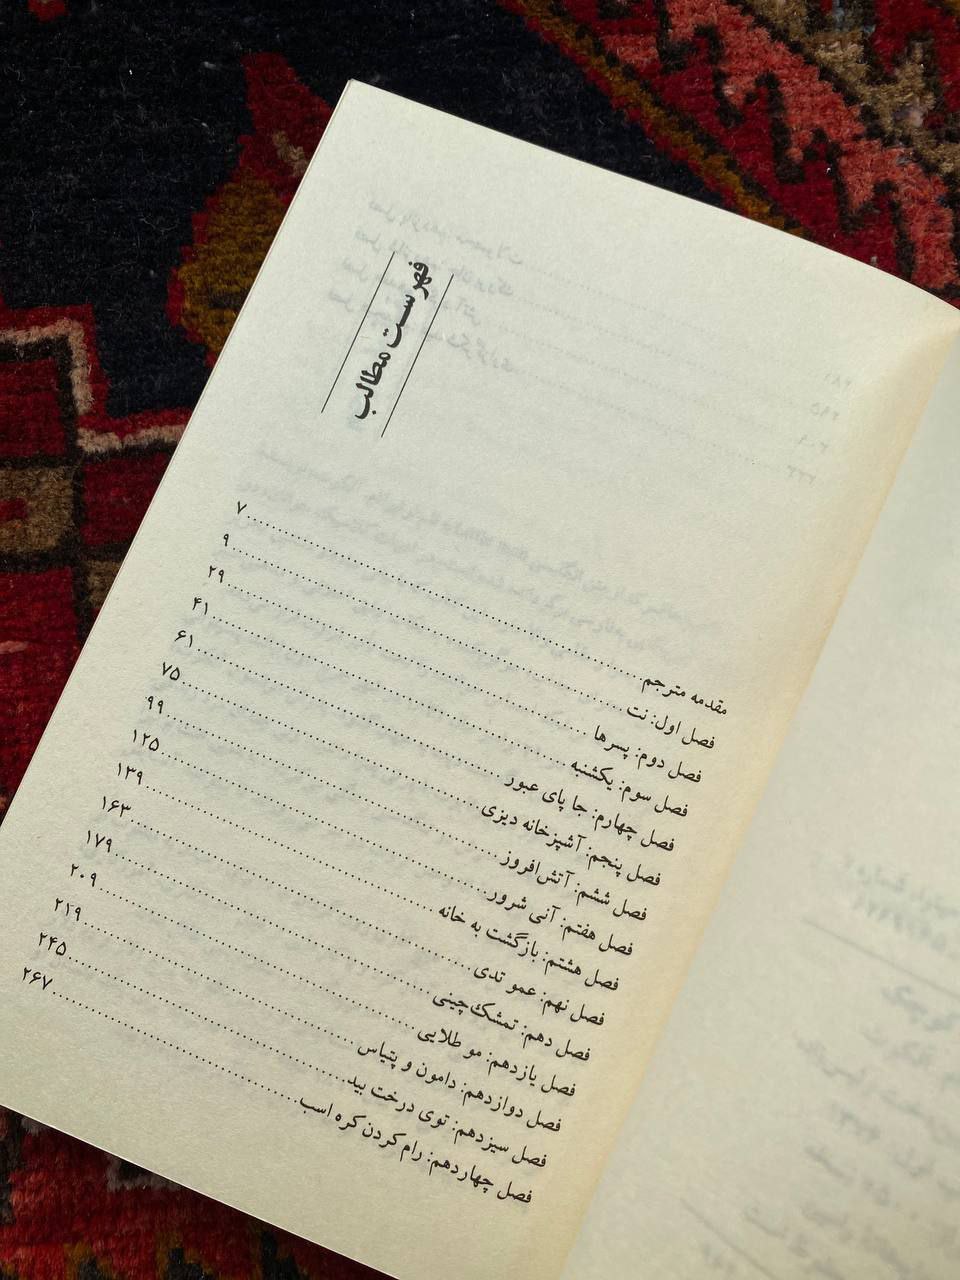 فهرست مطالب
مقدمه مترجم ۷
فصل اول: نت ۹
فصل دوم: پسرها ۲۹
فصل سوم: یکشنبه ۴۱
فصل چهارم: جا پای عبور ۶۱
فصل پنجم: آشپزخانه دیزی ۷۵
فصل ششم: آتش‌افروز ۹۹
فصل هفتم: آنی شرور ۱۲۵
فصل هشتم: بازگشت به خانه ۱۳۹
فصل نهم: عمو تدی ۱۶۳
فصل دهم: تمشک‌چینی ۱۷۹
فصل یازدهم: مو طلایی ۲۰۹
فصل دوازدهم: دامون و پتیاس ۲۱۹
فصل سیزدهم: توی درخت بید ۲۴۵
فصل چهاردهم: رام کردن کره اسب ۲۶۷